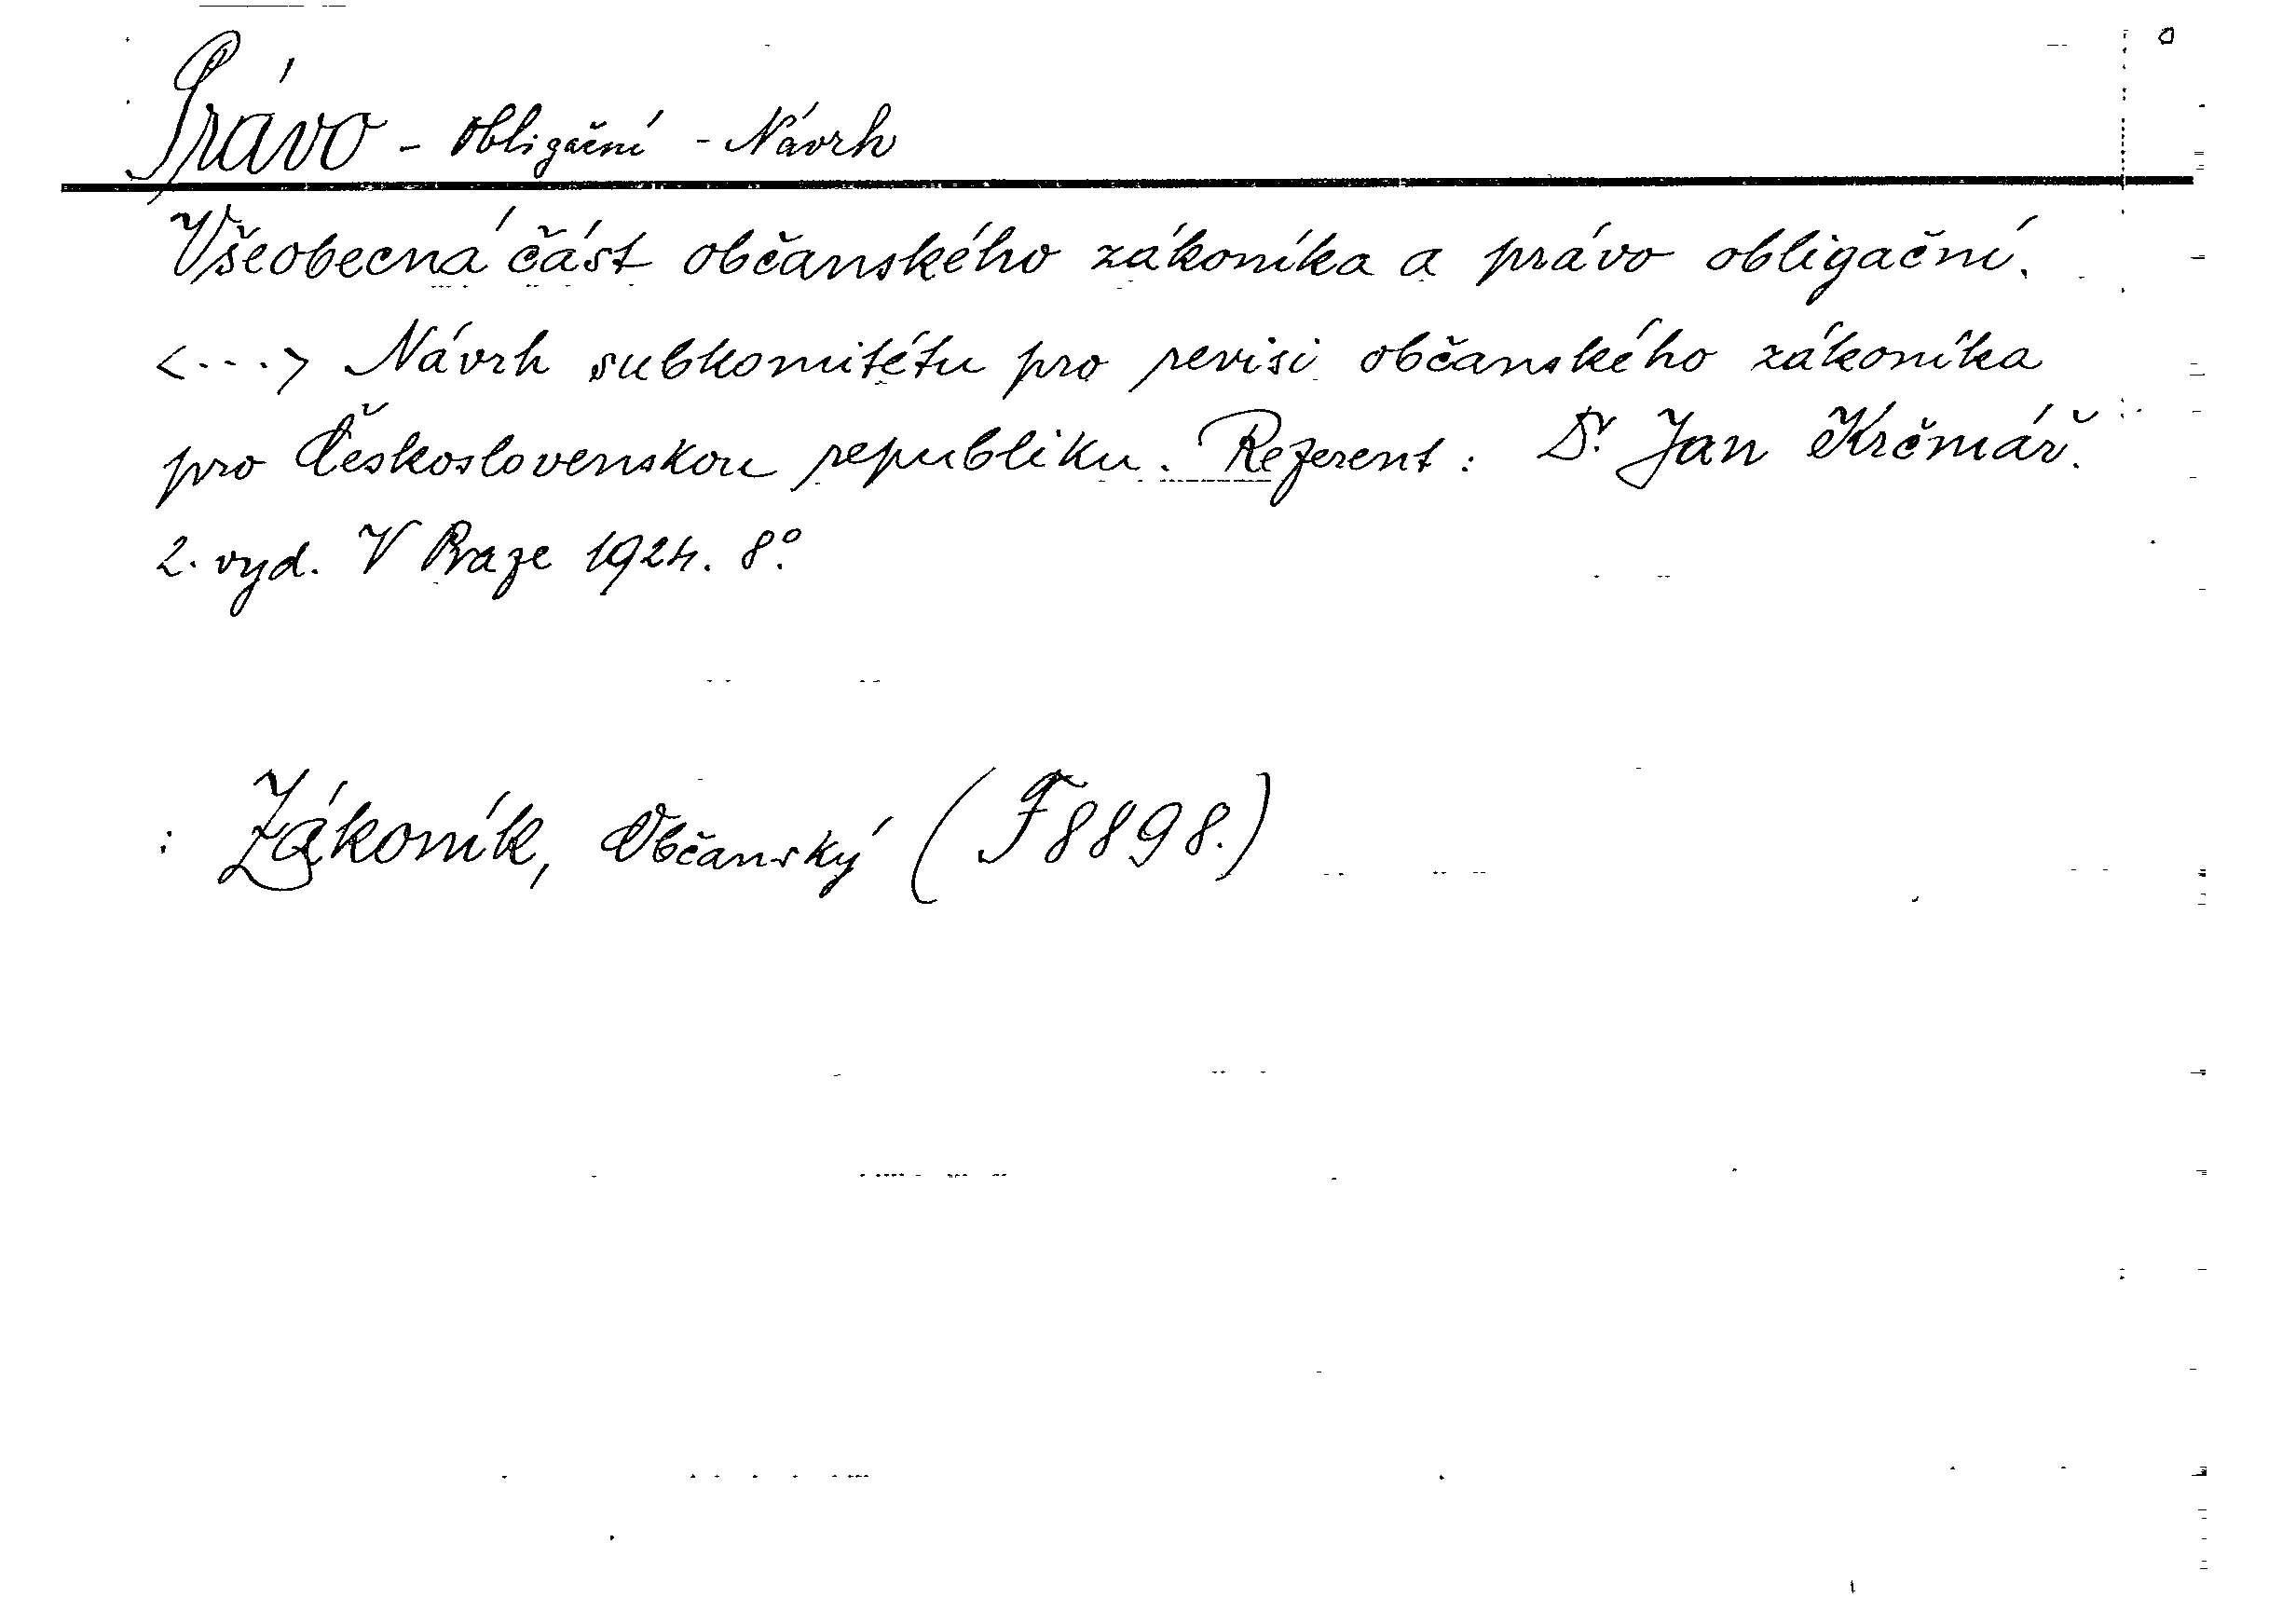 Právo - Obligační - Návrh
Všeobecná část občanského zákoníka a právo obligační.
<...> Návrh subkomitétu pro revisi občanského zákoníka
pro Československou republiku. Referent: Dr. Jan Krčmář.
2. vyd. V Praze 1924. 8°.
: Zákoník, Občanský (F 8898.)